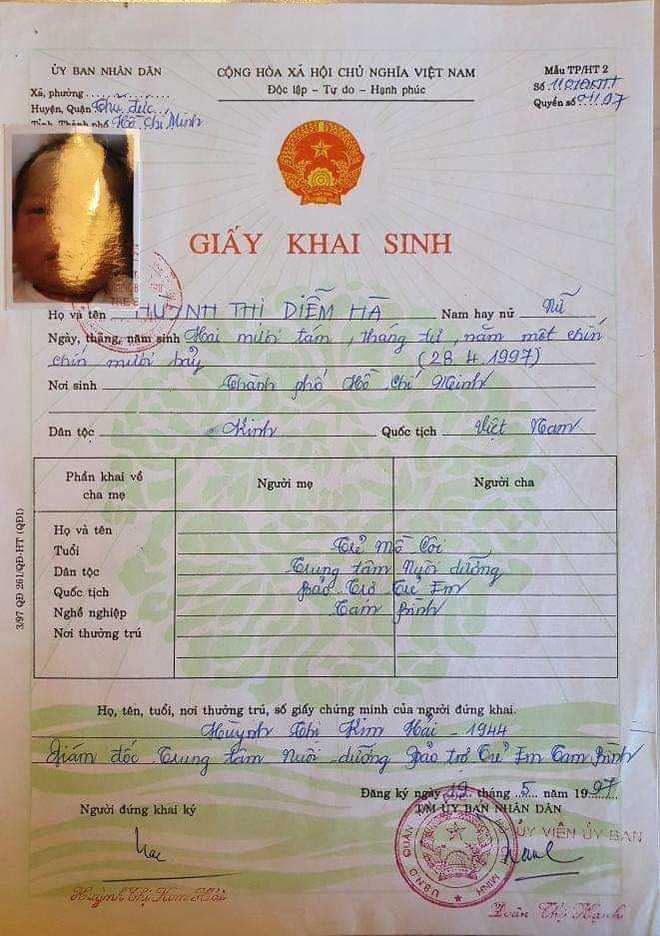 ỦY BAN NHÂN DÂN
CỘNG HÒA XÃ HỘI CHỦ NGHĨA VIỆT NAM
Mẫu TP/HT 2
Xã, phường
Độc lập - Tự do - Hạnh phúc
Số
Huyện, Quận Thủ đức
Quyển số 01/97
Tỉnh, Thành phố Hồ Chí Minh
GIẤY KHAI SINH
Họ và tên HUỲNH THỊ DIỄM HÀ Nam hay nữ Nữ
Ngày, tháng, năm sinh Hai mươi tám, tháng tư, năm một chín
chín mươi bảy (28.4.1997)
Nơi sinh Thành phố Hồ Chí Minh
Dân tộc Kinh Quốc tịch Việt Nam
Phần khai về cha mẹ Người mẹ Người cha
Họ và tên
Tuổi Trẻ Mồ Côi
Dân tộc Trung tâm Nuôi dưỡng
Quốc tịch Bảo Trợ Trẻ Em
Nghề nghiệp Tam Bình
Nơi thường trú
3/97 QĐ 261/QĐ-HT (QĐI)
Họ, tên, tuổi, nơi thường trú, số giấy chứng minh của người đứng khai.
Huỳnh Thị Kim Hải - 1944
Giám đốc Trung tâm Nuôi dưỡng Bảo trợ Trẻ Em Tam Bình
Đăng ký ngày 19 tháng 5 năm 1997
Người đứng khai ký
T/M ỦY BAN NHÂN DÂN
ỦY VIÊN ỦY BAN
Huỳnh Thị Kim Hải
Đoàn Thị Hạnh